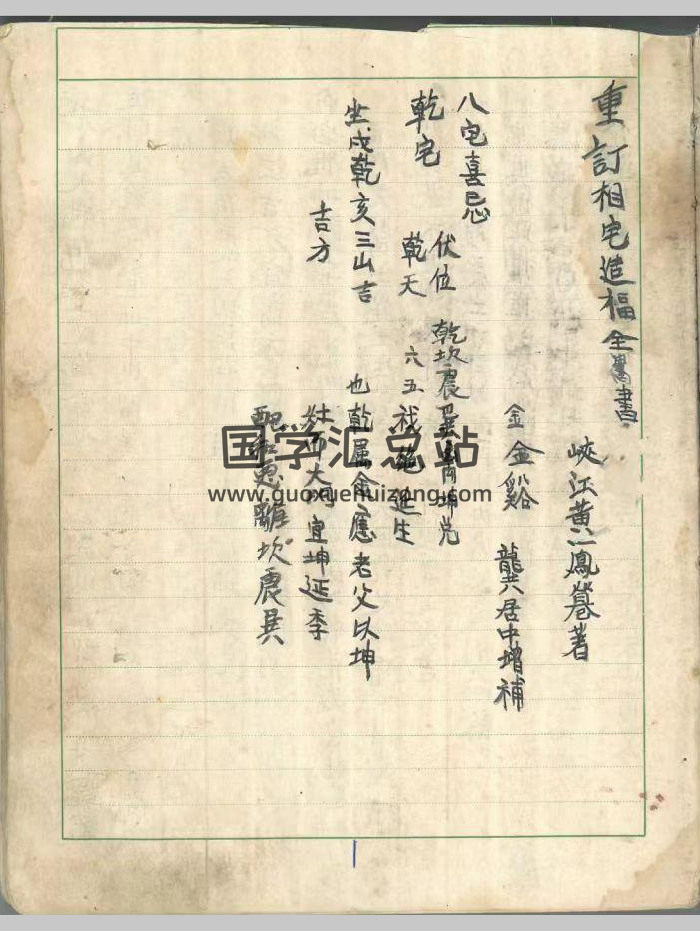 重訂相宅造福全書
峽江黃一鳳著
金 金谿 龔居中增補
八宅喜忌
乾宅 伏位 乾坎震巽離坤兌
乾天 六五 絕延生
坐戌乾亥三山吉 也乾属金應老父以坤
吉方 大門宜坤延季
配 離坎震巽
国学汇总站
www.guoxuehuizong.com